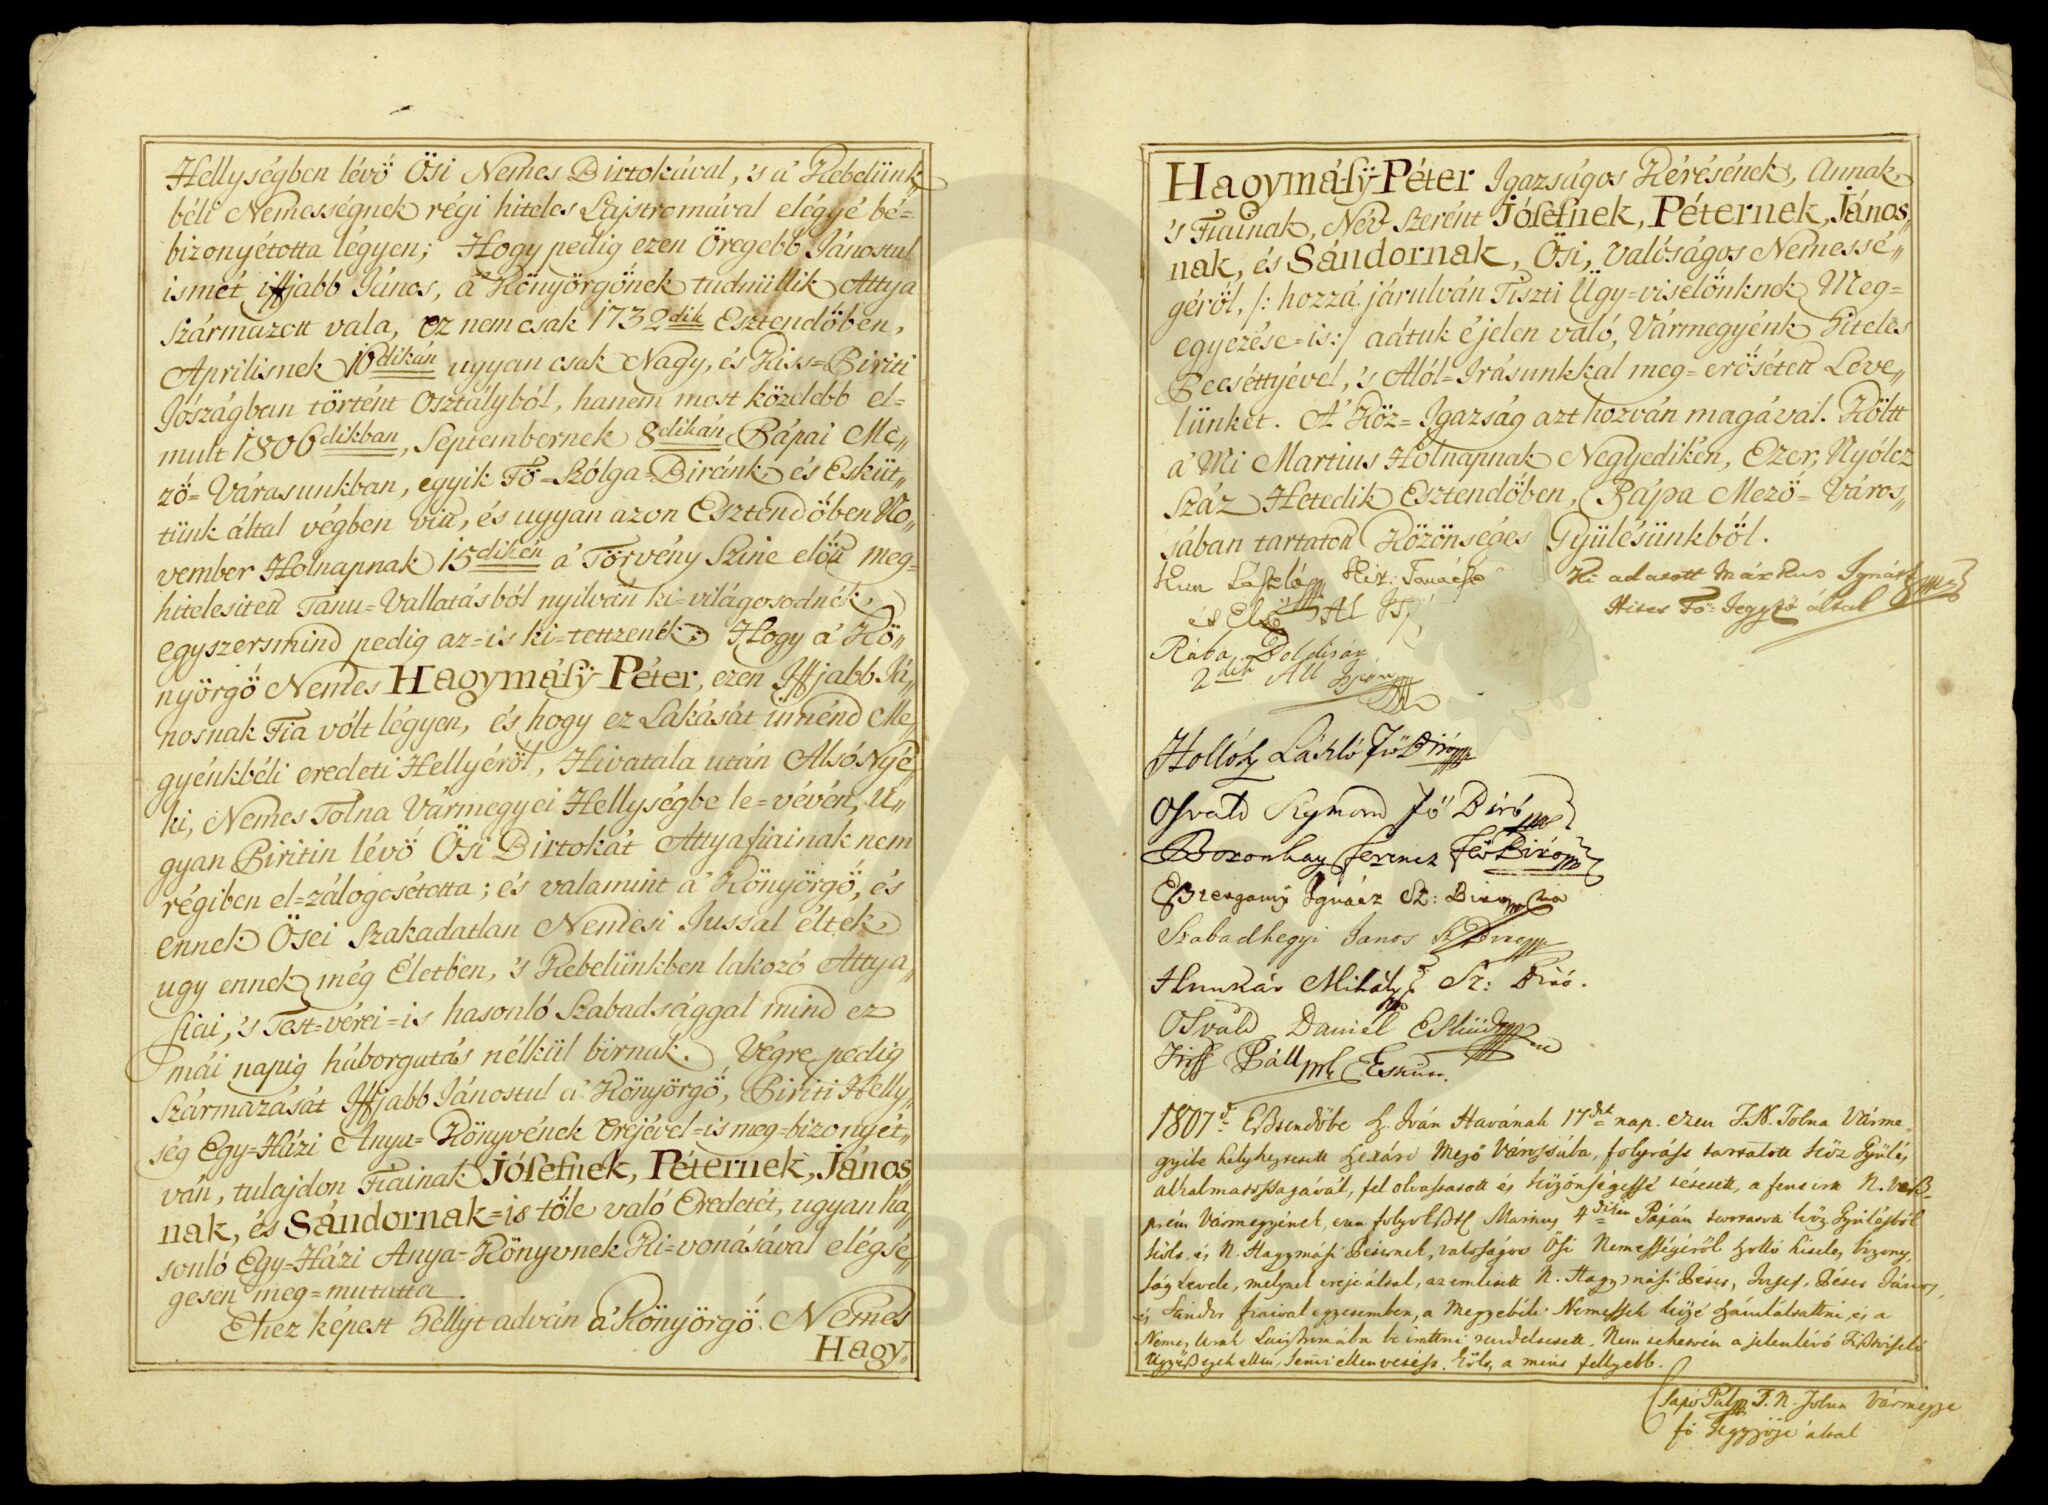 Hellységben lévő Ősi Nemes Birtokával, 's a' Kebelünk„
béli Nemességnek régi hiteles Lajstromával eléggyé bé=
bizonyétotta légyen; Hogy pedig ezen Öregebb Jánostul
ismét iffjabb János, a' Könyörgőnek tudmüllik Attya
Származott vala, ez nem csak 1732dik Esztendőben,
Aprilisnek 16dikán ugyan csak Nagy, és Kiss=Biriti
Jószágban történt Osztályból, hanem most közelebb el=
mult 1806dikban, Septembernek 8dikán Pápai Me„
ző=Várasunkban, egyik Fő=Szólga=Biránk és Esküt„
tünk által végben vitt, és ugyan azon Esztendőben No„
vember Holnapnak 15dikén a' Törvény Szine előtt meg=
hitelesitett Tanu=Vallatásból nyilván ki=világosodnék,
egyszersmind pedig az=is ki=tettzenék: Hogy a' Kö„
nyörgő Nemes Hagymásÿ Péter, ezen Iffjabb Já„
nosnak Fia vólt légyen, és hogy ez Lakását imménd Me„
gyénkbéli eredeti Hellyéről, Hivatala után AlsóNyé„
ki, Nemes Tolna Vármegyei Hellységbe le=vévén, u„
gyan Biritin lévő Ősi Birtokát Attyafiainak nem
régiben el=zálogosétotta; és valamint a' Könyörgő, és
ennek Ősei Szakadatlan Nemesi Jussal éltek
ugy ennek még Életben, 's Kebelünkben lakozó Attya„
fiai, 's Test=vérei=is hasonló Szabadsággal mind ez
mái napig háborgatás nélkül birnak. Végre pedig
Származását Iffjabb Jánostul a' Könyörgő, Biriti Helly„
ség Egy=Házi Anya=Könyvének erejével=is meg=bizonyét„
ván, tulajdon Fiainak Jósefnek, Péternek, János„
nak, és Sándornak=is tőle való Eredetét, ugyan ha„
sonló Egy=Házi Anya=Könyvnek Ki=vonásával elégsé„
gesen meg=mutatta.
Ehez képest Hellyt adván a' Könyörgő Nemes
Hagy„
Hagymásÿ Péter Igazságos Kérésének, Annak
's Fiainak, Név Szerént Jósefnek, Péternek, János„
nak, és Sándornak, Ősi, valóságos Nemessé„
géről, /: hozzá járulván Tiszti Ügy=viselőnknek Meg=
egyezése=is:/ adtuk é jelen való, Vármegyénk Hiteles
Pecséttyével, 's Alól=Irásunkkal meg=erősétett Leve„
lünket. A' Köz=Igazság azt hozván magával. Költt
a' Mi Martius Holnapnak Negyedikén, Ezer, Nyólcz
Száz Hetedik Esztendőben, Pápa Mező=Város„
sában tartatott Közönséges Gyülésünkből.
Kun László Kir: Tanácso
és Első Al Is
Ki adatott Márkus Ignátz
Hites Fő=Jegyző által
Rába Boldisár
2dik All Ispán
Hollósy László Fő Biró
Osvald Sigmond fő Biró
Boronkay ferencz fő Biró
Ignácz Sz: Biro
Szabadhegyi Janos
Hunkár Mihály Sz: Biró.
Osvald Daniel Esküdt
Páll Esküt.
1807d: Esztendőbe Sz. Iván Havának 17dik nap. ezen T.N. Tolna Várme„
gyibe helyheztetett Mező Várossába, folyvást tartatott Köz Gyülés
alkalmatosságával, fel olvastatott és közönségessé tétetett, a fent irtt N. Vesz„
prém Vármegyének, ezen folyó Eszt. Martius 4dikén Pápán tartatott köz Gyüléséből
költ, és N. Hagymási Péternek, valóságos Ősi Nemességéről szólló hiteles bizony„
ság Levele, melynek ereje által, az emlitett N. Hagymási Péter, Josef, Péter János,
és Sándor fiaival egyetemben, a Megyebéli Nemessek közé számláltattni, és a
Nemes Urak Laistromába be irattni rendeltetett. Nem tehetvén a jelenlévő Tisztviselő
ellen, semmi ellenvetést. Költ, a mint fellyebb.
Csapó Pál T.N. Tolna Vármegye
fő Jegyzője által